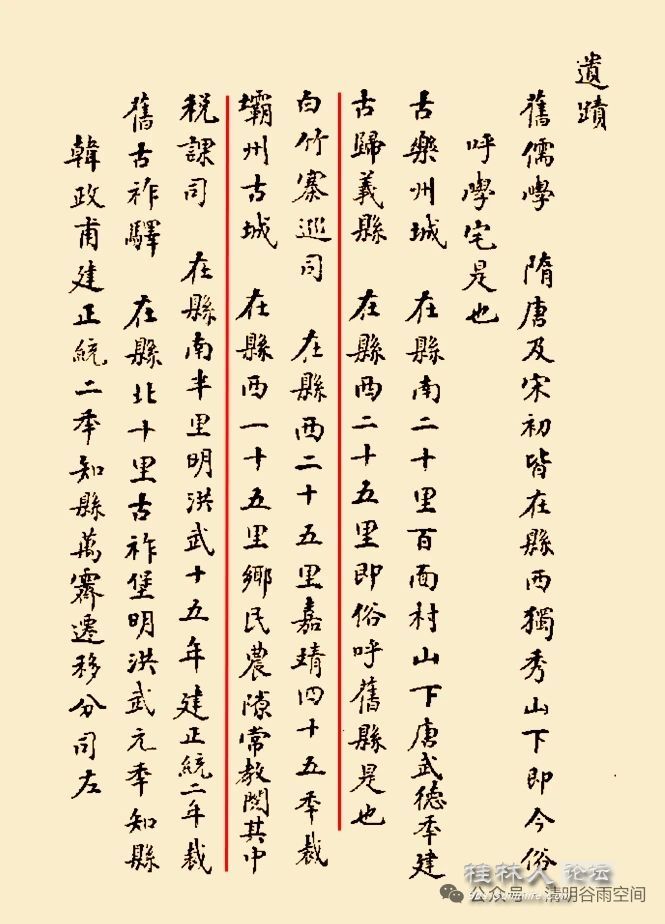 遺蹟
舊儒學 隋唐及宋初皆在縣西獨秀山下即今俗
呼學宅是也
古樂州城 在縣南二十里百面村山下唐武德季建
古歸義縣 在縣西二十五里即俗呼舊縣是也
白竹寨巡司 在縣西二十五里嘉靖四十五季裁
壩州古城 在縣西一十五里鄉民農隙常教閱其中
稅課司 在縣南半里明洪武十五年建正統二年裁
舊古祚驛 在縣北十里古祚堡明洪武元季知縣
韓政甫建正統二季知縣萬霽遷移分司左
桂林人论坛
公众号 清明谷雨空间